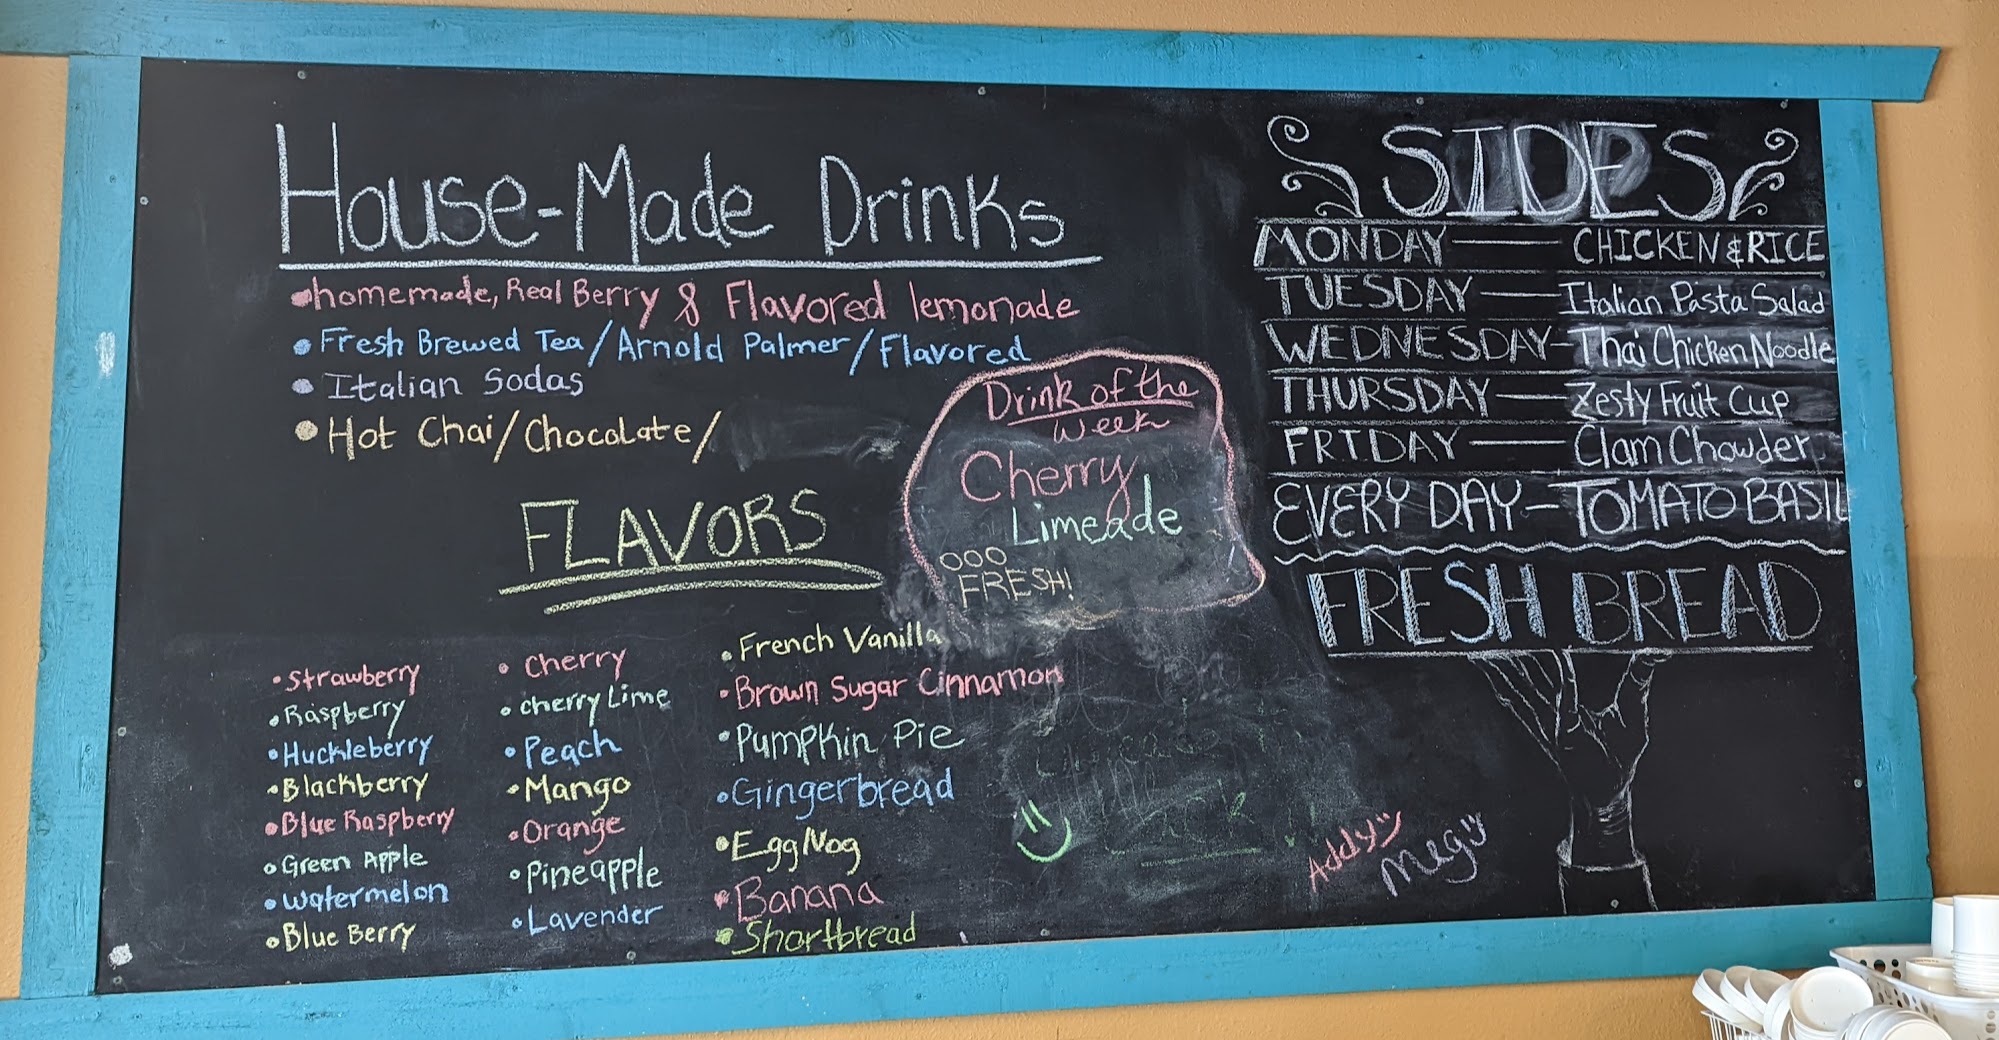 House-Made Drinks
•homemade, Real Berry & Flavored lemonade
•Fresh Brewed Tea/Arnold Palmer/Flavored
•Italian Sodas
•Hot Chai/Chocolate/
Drink of the
Week
Cherry
Limeade
OOO
FRESH!
FLAVORS
•Strawberry
•Raspberry
•Huckleberry
•Blackberry
•Blue Raspberry
•Green Apple
•Watermelon
•Blue Berry
•Cherry
•cherry Lime
•Peach
•Mango
•Orange
•Pineapple
•Lavender
•French Vanilla
•Brown Sugar Cinnamon
•Pumpkin Pie
•Gingerbread
•EggNog
•Banana
•Shortbread
SIDES
MONDAY — CHICKEN & RICE
TUESDAY — Italian Pasta Salad
WEDNESDAY — Thai Chicken Noodle
THURSDAY — Zesty Fruit Cup
FRIDAY — Clam Chowder
EVERY DAY — TOMATO BASIL
FRESH BREAD
Addy
Meg